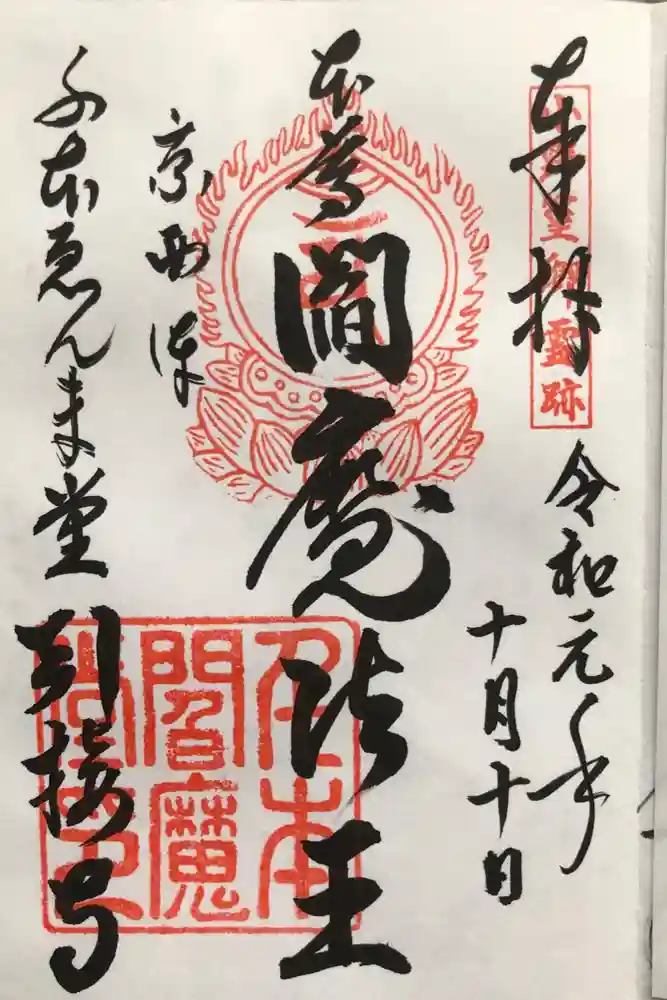 奉拝
小野篁卿靈跡
令和元年
十月十日
本尊 閻魔法王
京西陣
千本ゑんま堂
引接寺
千本
閻魔